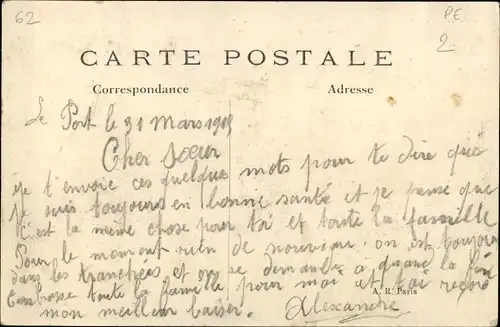 62
P.E.
2
CARTE POSTALE
Correspondance
Adresse
Le Port le 31 Mars 1915
Cher Sœur
je t'envoie ces quelques mots pour te dire que
je suis toujours en bonne santé et je pense que
c'est la même chose pour toi et toute la famille
Pour le moment rien de nouveau on est toujours
dans les tranchées et on se demande a quand la fin
Embrasse toute la famille pour moi et toi reçois
mon meilleur baiser.
Alexandre
A. R. Paris